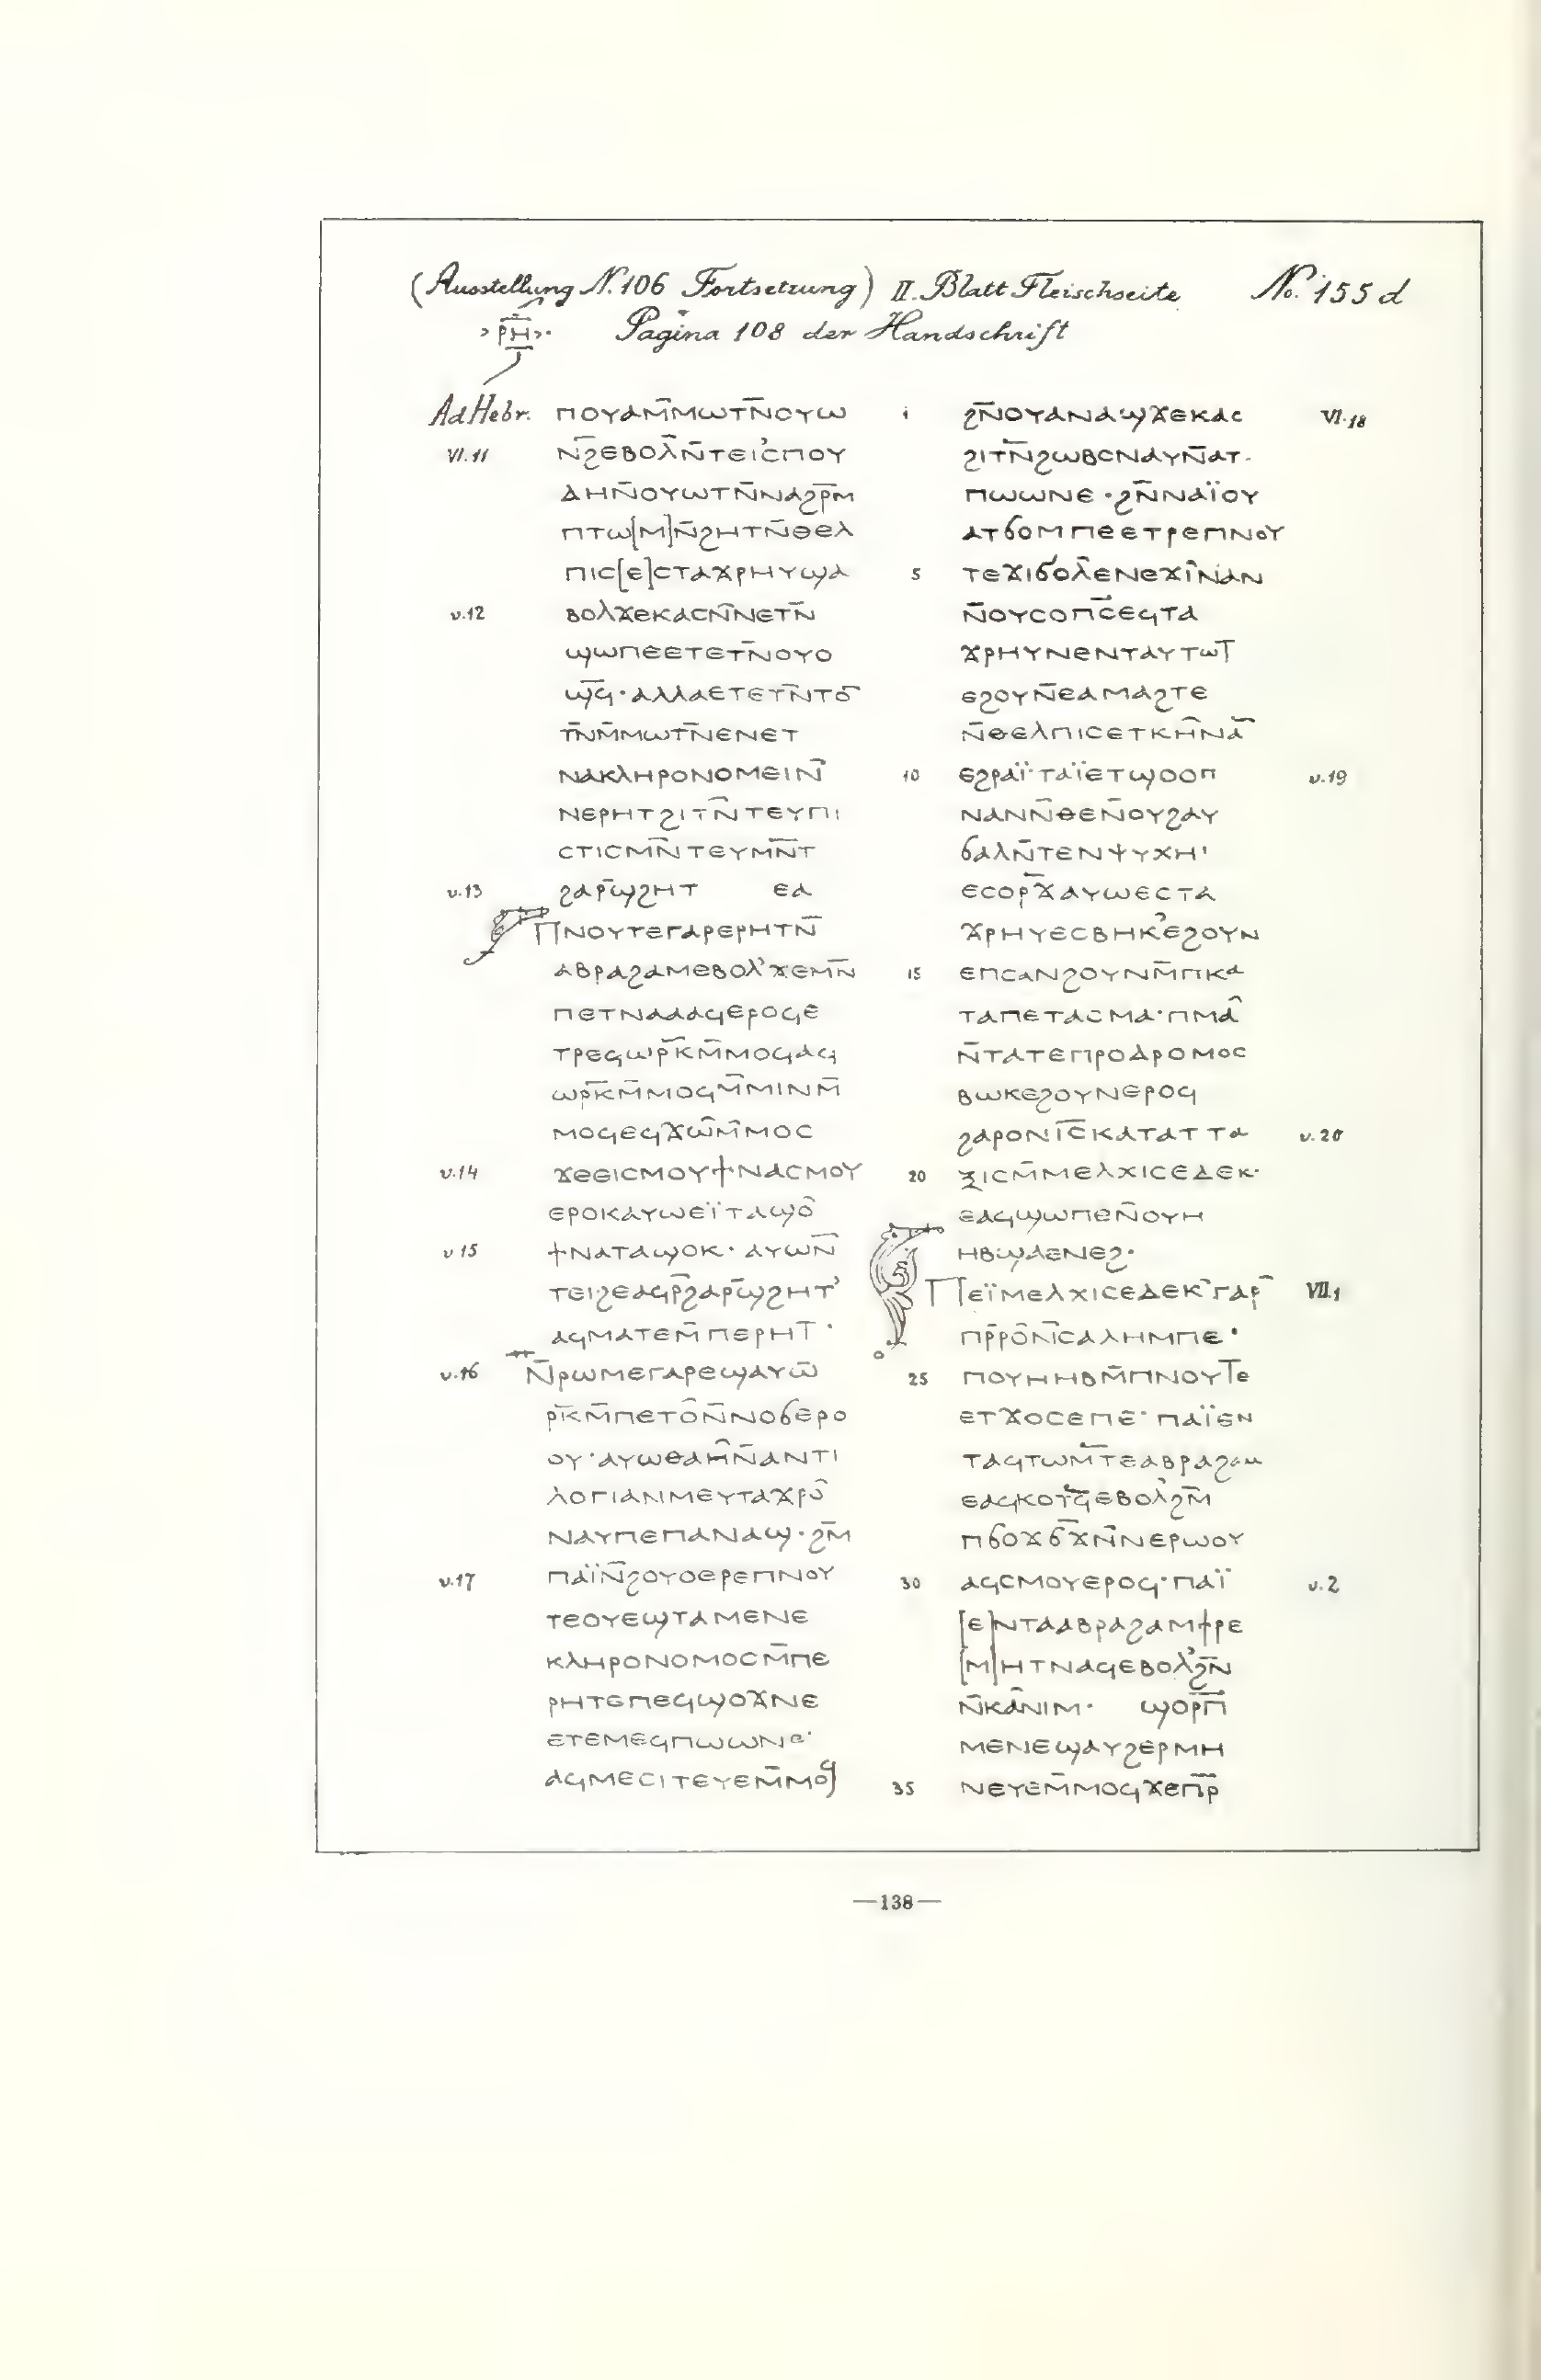 (Ausstellung N. 106 Fortsetzung) II. Blatt Fleischseite No. 155 d
›ⲣ̅ⲏ̅›· Pagina 108 der Handschrift
Ad Hebr. ⲡⲟⲩⲁⲙ̄ⲙⲱⲧⲛ̄ⲟⲩⲱ
VI.11 ⲛ̄ϩⲉⲃⲟⲗⲛ̄ⲧⲉⲓⲥⲡⲟⲩ
ⲇⲏⲛ̄ⲟⲩⲱⲧⲛ̄ⲛⲁϩⲣ̄ⲙ
ⲡⲧⲱ[ⲙ]ⲛ̄ϩⲏⲧⲛ̄ⲑⲉⲗ
ⲡⲓⲥ[ⲉ]ⲥⲧⲁϫⲣⲏⲩϣⲁ
v.12 ⲃⲟⲗϫⲉⲕⲁⲥⲛ̄ⲛⲉⲧⲛ̄
ϣⲱⲡⲉⲉⲧⲉⲧⲛ̄ⲟⲩⲟ
ϣϥ̄·ⲁⲗⲗⲁⲉⲧⲉⲧⲛ̄ⲧⲟ̄
ⲧⲛ̄ⲙ̄ⲙⲱⲧⲛ̄ⲉⲛⲉⲧ
ⲛⲁⲕⲗⲏⲣⲟⲛⲟⲙⲉⲓⲛ̄
ⲛⲉⲣⲏⲧϩⲓⲧⲛ̄ⲧⲉⲩⲡⲓ
ⲥⲧⲓⲥⲙⲛ̄ⲧⲉⲩⲙⲛ̄ⲧ
v.13 ϩⲁⲣϣ̄ϩⲏⲧ ⲉⲁ
ⲡⲛⲟⲩⲧⲉⲅⲁⲣⲉⲣⲏⲧⲛ̄
ⲁⲃⲣⲁϩⲁⲙⲉⲃⲟⲗ’ϫⲉⲙⲛ̄
ⲡⲉⲧⲛⲁⲁⲁϥⲉⲣⲟϥⲉ
ⲧⲣⲉϥⲱⲣⲕ̄ⲙ̄ⲙⲟϥⲁϥ
ⲱⲣⲕ̄ⲙ̄ⲙⲟϥⲙ̄ⲙⲓⲛⲙ̄
ⲙⲟϥⲉϥϫⲱ̂ⲙ̄ⲙⲟⲥ
v.14 ϫⲉⲉⲓⲥⲙⲟⲩϯⲛⲁⲥⲙⲟⲩ
ⲉⲣⲟⲕⲁⲩⲱⲉⲓ̈ⲧⲁϣⲟ̂
v.15 ϯⲛⲁⲧⲁϣⲟⲕ·ⲁⲩⲱⲛ̄
ⲧⲉⲓϩⲉⲁϥⲣ̄ϩⲁⲣϣ̄ϩⲏⲧ’
ⲁϥⲙⲁⲧⲉⲙ̄ⲡⲉⲣⲏⲧ·
v.16 ⲛ̄ⲣⲱⲙⲉⲅⲁⲣⲉϣⲁⲩⲱ̄
ⲣⲕ̄ⲙ̄ⲡⲉⲧⲟ̂ⲛ̄ⲛⲟϭⲉⲣⲟ
ⲟⲩ·ⲁⲩⲱⲑⲁⲏ̂ⲛ̄ⲁⲛⲧⲓ
ⲗⲟⲅⲓⲁⲛⲓⲙⲉⲩⲧⲁϫⲣⲟ̂
ⲛⲁⲩⲡⲉⲡⲁⲛⲁϣ·ϩⲙ̄
v.17 ⲡⲁⲓ̈ⲛ̄ϩⲟⲩⲟⲉⲣⲉⲡⲛⲟⲩ
ⲧⲉⲟⲩⲉϣⲧⲁⲙⲉⲛⲉ
ⲕⲗⲏⲣⲟⲛⲟⲙⲟⲥⲙ̄ⲡⲉ
ⲣⲏⲧⲉⲡⲉϥϣⲟϫⲛⲉ
ⲉⲧⲉⲙⲉϥⲡⲱⲱⲛⲉ·
ⲁϥⲙⲉⲥⲓⲧⲉⲩⲉⲙ̄ⲙⲟϥ
1 ϩⲛ̄ⲟⲩⲁⲛⲁϣϫⲉⲕⲁⲥ VI.18
ϩⲓⲧⲛ̄ϩⲱⲃⲥⲛⲁⲩⲛ̄ⲁⲧ-
ⲡⲱⲱⲛⲉ·ϩⲛ̄ⲛⲁⲓ̈ⲟⲩ
ⲁⲧϭⲟⲙⲡⲉⲉⲧⲣⲉⲡⲛⲟⲩ
5 ⲧⲉϫⲓϭⲟⲗ̂ⲉⲛⲉϫⲓ̂ⲛⲁⲛ
ⲛ̄ⲟⲩⲥⲟⲡⲥ̄ⲉϥⲧⲁ
ϫⲣⲏⲩⲛⲉⲛⲧⲁⲩⲧⲱⲧ
ⲉϩⲟⲩⲛ̄ⲉⲁⲙⲁϩⲧⲉ
ⲛ̄ⲑⲉⲗⲡⲓⲥⲉⲧⲕⲏ̂ⲛⲁ̄
10 ⲉϩⲣⲁⲓ̈·ⲧⲁⲓ̈ⲉⲧϣⲟⲟⲡ v.19
ⲛⲁⲛⲛ̄ⲑⲉⲛ̄ⲟⲩϩⲁⲩ
ϭⲁⲗⲛ̄ⲧⲉⲛⲯⲩⲭⲏ·
ⲉⲥⲟⲣϫ̄ⲁⲩⲱⲉⲥⲧⲁ
ϫⲣⲏⲩⲉⲥⲃⲏⲕ’ⲉϩⲟⲩⲛ
15 ⲉⲡⲥⲁⲛϩⲟⲩⲛⲙ̄ⲡⲕⲁ
ⲧⲁⲡⲉⲧⲁⲥⲙⲁ·ⲡⲙⲁ̂
ⲛ̄ⲧⲁⲧⲉⲡⲣⲟⲇⲣⲟⲙⲟⲥ
ⲃⲱⲕⲉϩⲟⲩⲛⲉⲣⲟϥ
ϩⲁⲣⲟⲛⲓ̅ⲥ̅ⲕⲁⲧⲁⲧⲧⲁ v.20
20 ⲝⲓⲥⲙ̄ⲙⲉⲗⲭⲓⲥⲉⲇⲉⲕ·
ⲉⲁϥϣⲱⲡⲉⲛ̄ⲟⲩⲏ
ⲏⲃϣⲁⲉⲛⲉϩ·
ⲡⲉⲓ̈ⲙⲉⲗⲭⲓⲥⲉⲇⲉⲕ’ⲅⲁⲣ VII.1
ⲡⲣ̄ⲣⲟ̂ⲛ̄ⲥⲁⲗⲏⲙⲡⲉ·
25 ⲡⲟⲩⲏⲏⲃⲙ̄ⲡⲛⲟⲩⲧⲉ
ⲉⲧϫⲟⲥⲉⲡⲉ·ⲡⲁⲓ̈ⲉⲛ
ⲧⲁϥⲧⲱⲙ̄ⲧⲉⲁⲃⲣⲁϩⲁⲙ
ⲉⲁϥⲕⲟⲧϥ̄ⲉⲃⲟⲗ’ϩⲙ̄
ⲡϭⲟϫϭϫ̄ⲛ̄ⲛⲉⲣⲱⲟⲩ
30 ⲁϥⲥⲙⲟⲩⲉⲣⲟϥ·ⲡⲁⲓ̈ v.2
[ⲉ]ⲛⲧⲁⲁⲃⲣⲁϩⲁⲙϯⲣⲉ
[ⲙ]ⲏⲧⲛⲁϥⲉⲃⲟⲗ’ϩⲛ̄
ⲛ̄ⲕⲁ̂ⲛⲓⲙ· ϣⲟⲣⲡ̄
ⲙⲉⲛⲉϣⲁⲩϩⲉⲣⲙⲏ
35 ⲛⲉⲩⲉⲙ̄ⲙⲟϥϫⲉⲡⲣ̄
—138—